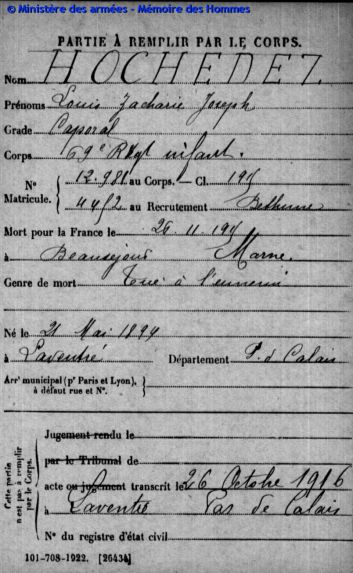 © Ministère des armées - Mémoire des Hommes
PARTIE À REMPLIR PAR LE CORPS.
Nom HOCHEDEZ
Prénoms Louis Zacharie Joseph
Grade Caporal
Corps 69e Rgt infant.
N° 12.981 au Corps. — Cl. 1915
Matricule. 4452 au Recrutement Béthune
Mort pour la France le 26.11.1915
à Beauséjour Marne.
Genre de mort Tué à l'ennemi
Né le 21 Mai 1894
à Laventie Département P. d Calais
Arrt municipal (pr Paris et Lyon),
à défaut rue et N°.
Jugement rendu le
par le Tribunal de
acte ou jugement transcrit le 26 Octobre 1916
à Laventie Pas de Calais
N° du registre d'état civil
Cette partie
n'est pas à remplir
par le Corps.
101-708-1922. [26434]